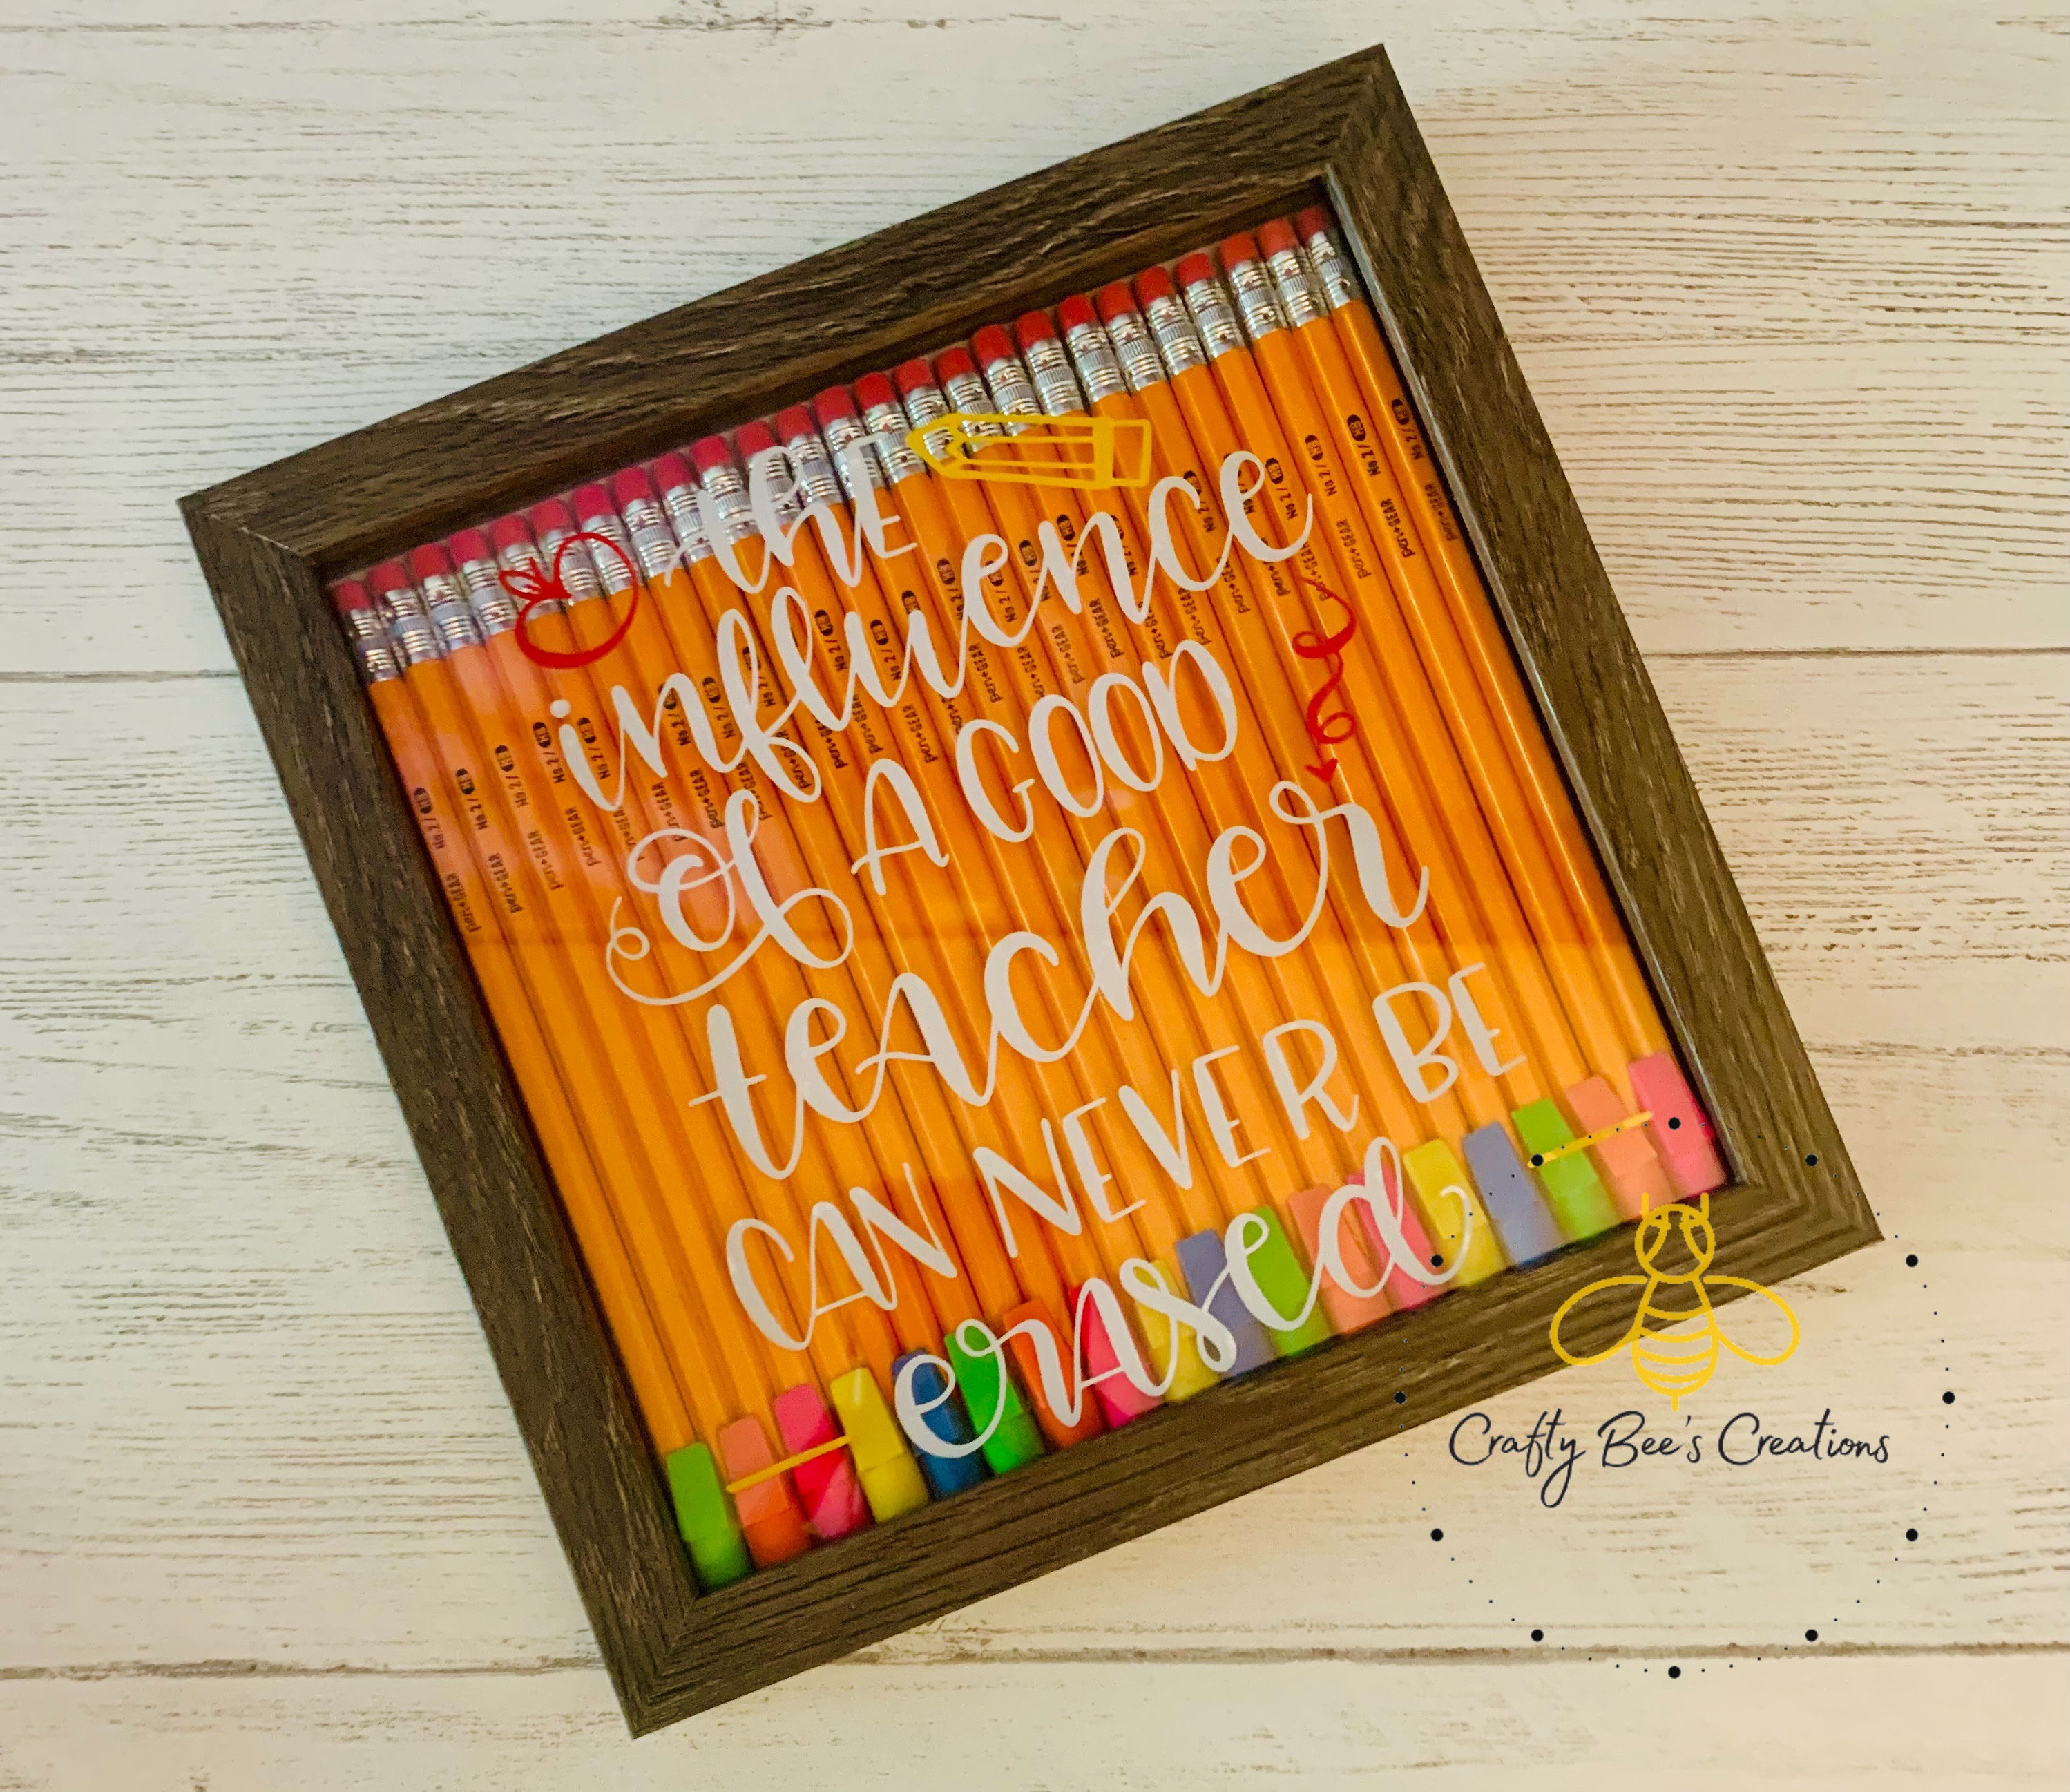 the
influence
of A GOOD
teacher
CAN NEVER BE
erased
No 2 / HB pen+GEAR
Crafty Bee's Creations